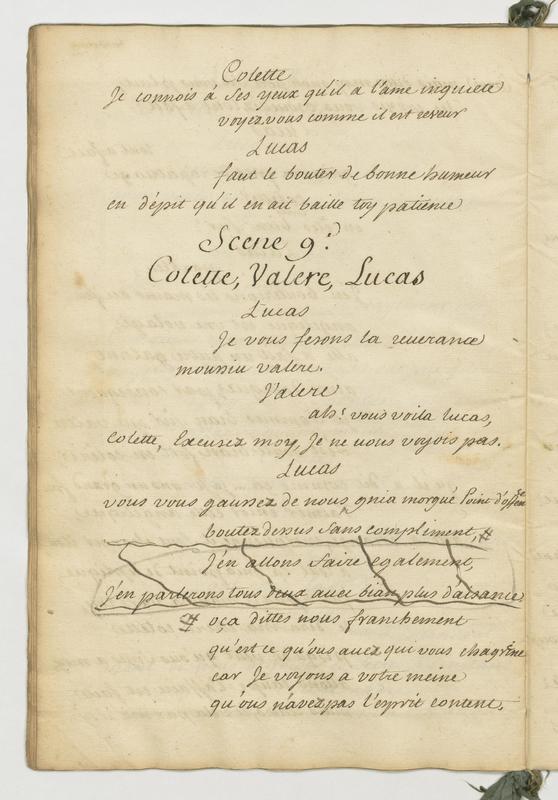 Colette
Je connois á ses yeux qu'il a l'ame inquiete
voyez vous comme il est resveur
Lucas
faut le bouter de bonne humeur
en dépit qu'il en ait baille toy patience
Scene 9.e
Colette, Valere, Lucas
Lucas
Je vous fesons la reuerance
moussiu valere.
Valere
ah! vous voila lucas,
Colette, Excusez moy, Je ne vous voyois pas.
Lucas
vous vous gaussez de nous gnia morgué Point d'offense
boutez dessus sans compliment, #
J'en allons faire egalement,
J'en parlerons tous deux auec bian plus d'aisance
# oça dittes nous franchement
qu'est ce qu'ous auez qui vous chagrine
car Je voyons a votre meine
qu'ous n'avez pas l'esprit content,